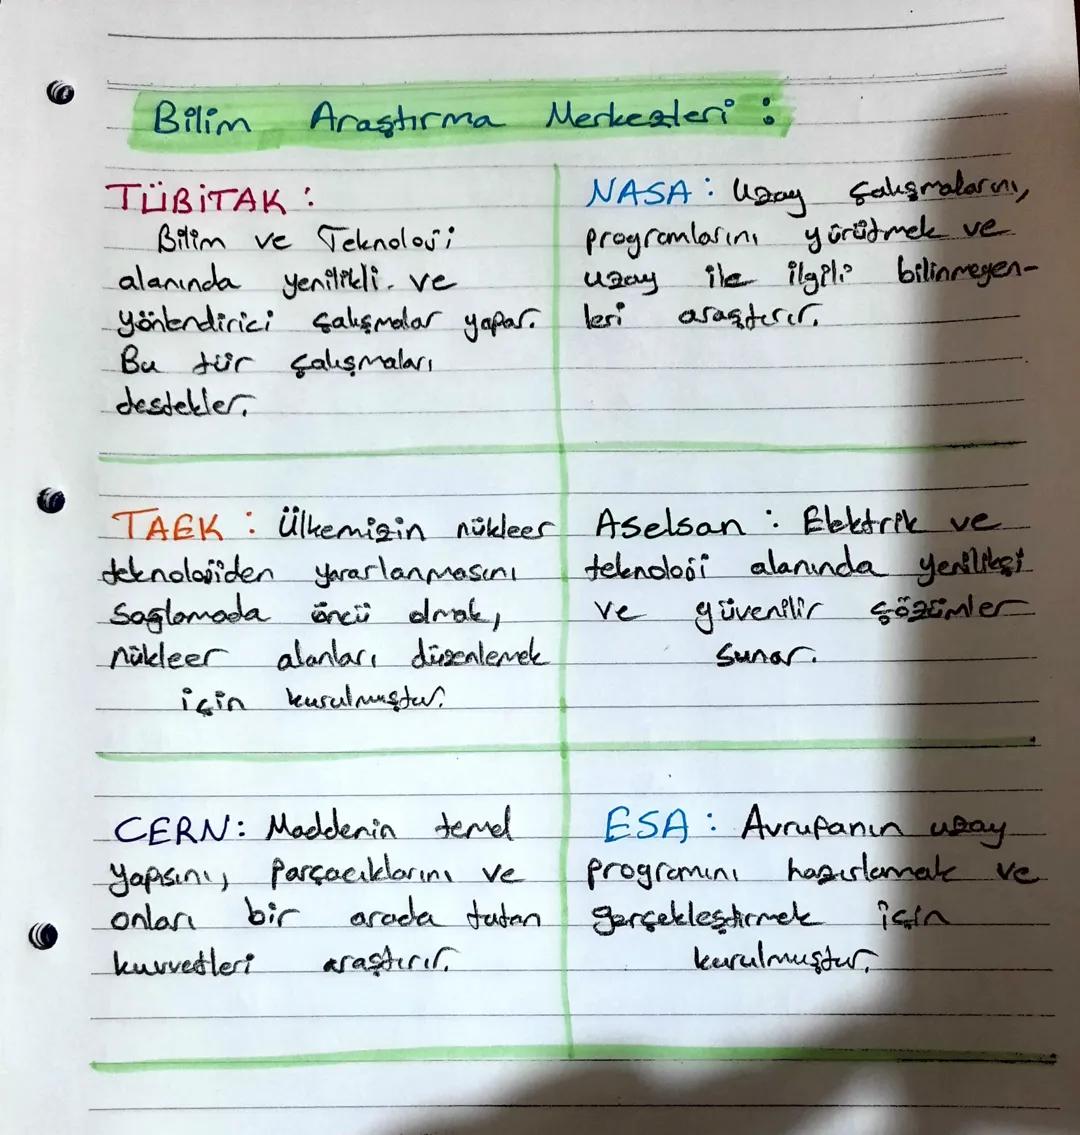 Bilim Araştırma Merkezleri :
TÜBİTAK :
Bilim ve Teknoloji
alanında yenilikli ve
yönlendirici çalışmalar yapar.
Bu tür çalışmaları
destekler.
NASA : Uzay çalışmalarını,
programlarını yürütmek ve
uzay ile ilgili bilinmeyen-
leri araştırır.
TAEK : Ülkemizin nükleer
teknolojiden yararlanmasını
sağlamada öncü olmak,
nükleer alanları düzenlemek
için kurulmuştur.
Aselsan : Elektrik ve
teknoloji alanında yenilikçi
ve güvenilir çözümler
sunar.
CERN : Maddenin temel
yapısını, parçacıklarını ve
onları bir arada tutan
kuvvetleri araştırır.
ESA : Avrupanın uzay
programını hazırlamak ve
gerçekleştirmek için
kurulmuştur.